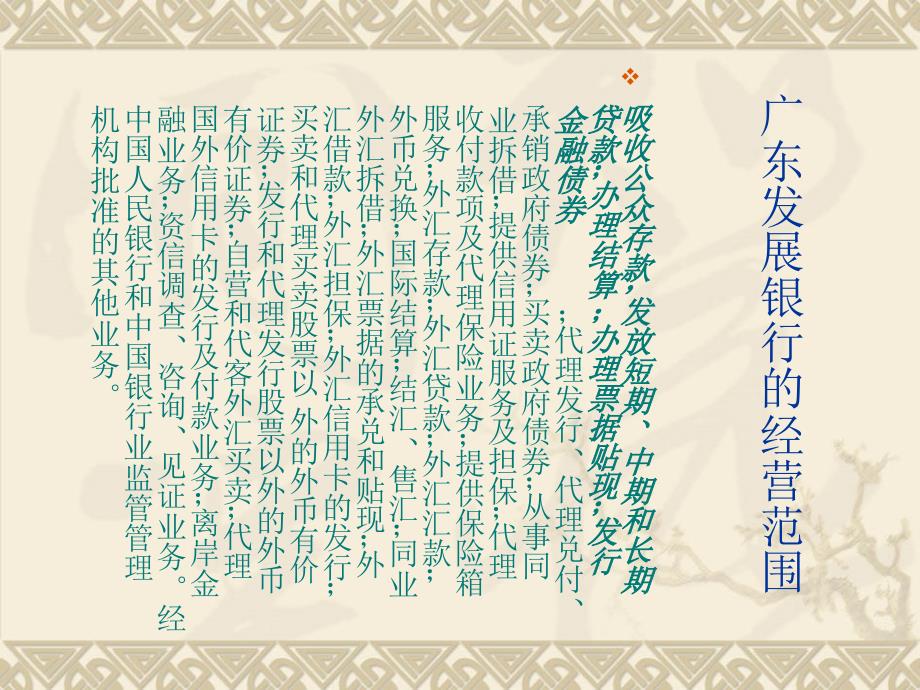 广东发展银行的经营范围
吸收公众存款;发放短期、中期和长期
贷款;办理结算;办理票据贴现;发行
金融债券
;代理发行、代理兑付、
承销政府债券;买卖政府债券;从事同
业拆借;提供信用证服务及担保;代理
收付款项及代理保险业务;提供保险箱
服务;外汇存款;外汇贷款;外汇汇款;
外币兑换;国际结算;结汇、售汇;同业
外汇拆借;外汇票据的承兑和贴现;外
汇借款;外汇担保;外汇信用卡的发行;
买卖和代理买卖股票以 外的外币有价
证券;发行和代理发行股票以外的外币
有价证券;自营和代客外汇买卖;代理
国外信用卡的发行及付款业务;离岸金
融业务;资信调查、咨询、见证业务。经
中国人民银行和中国银行业监管管理
机构批准的其他业务。